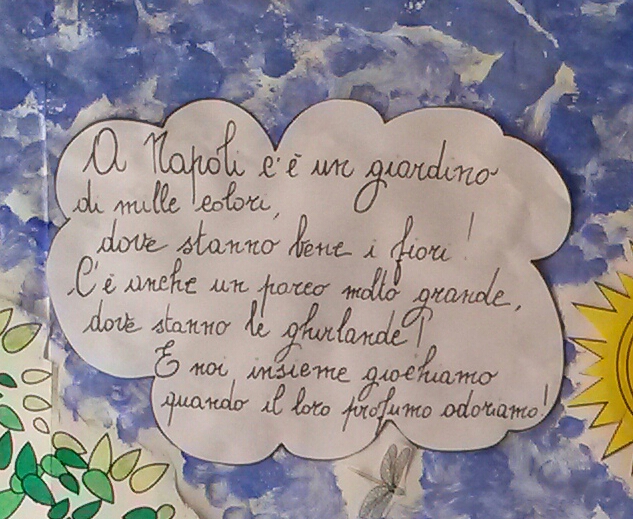 A Napoli c'è un giardino
di mille colori,
dove stanno bene i fiori!
C'è anche un parco molto grande,
dove stanno le ghirlande!
E noi insieme giochiamo
quando il loro profumo odoriamo!